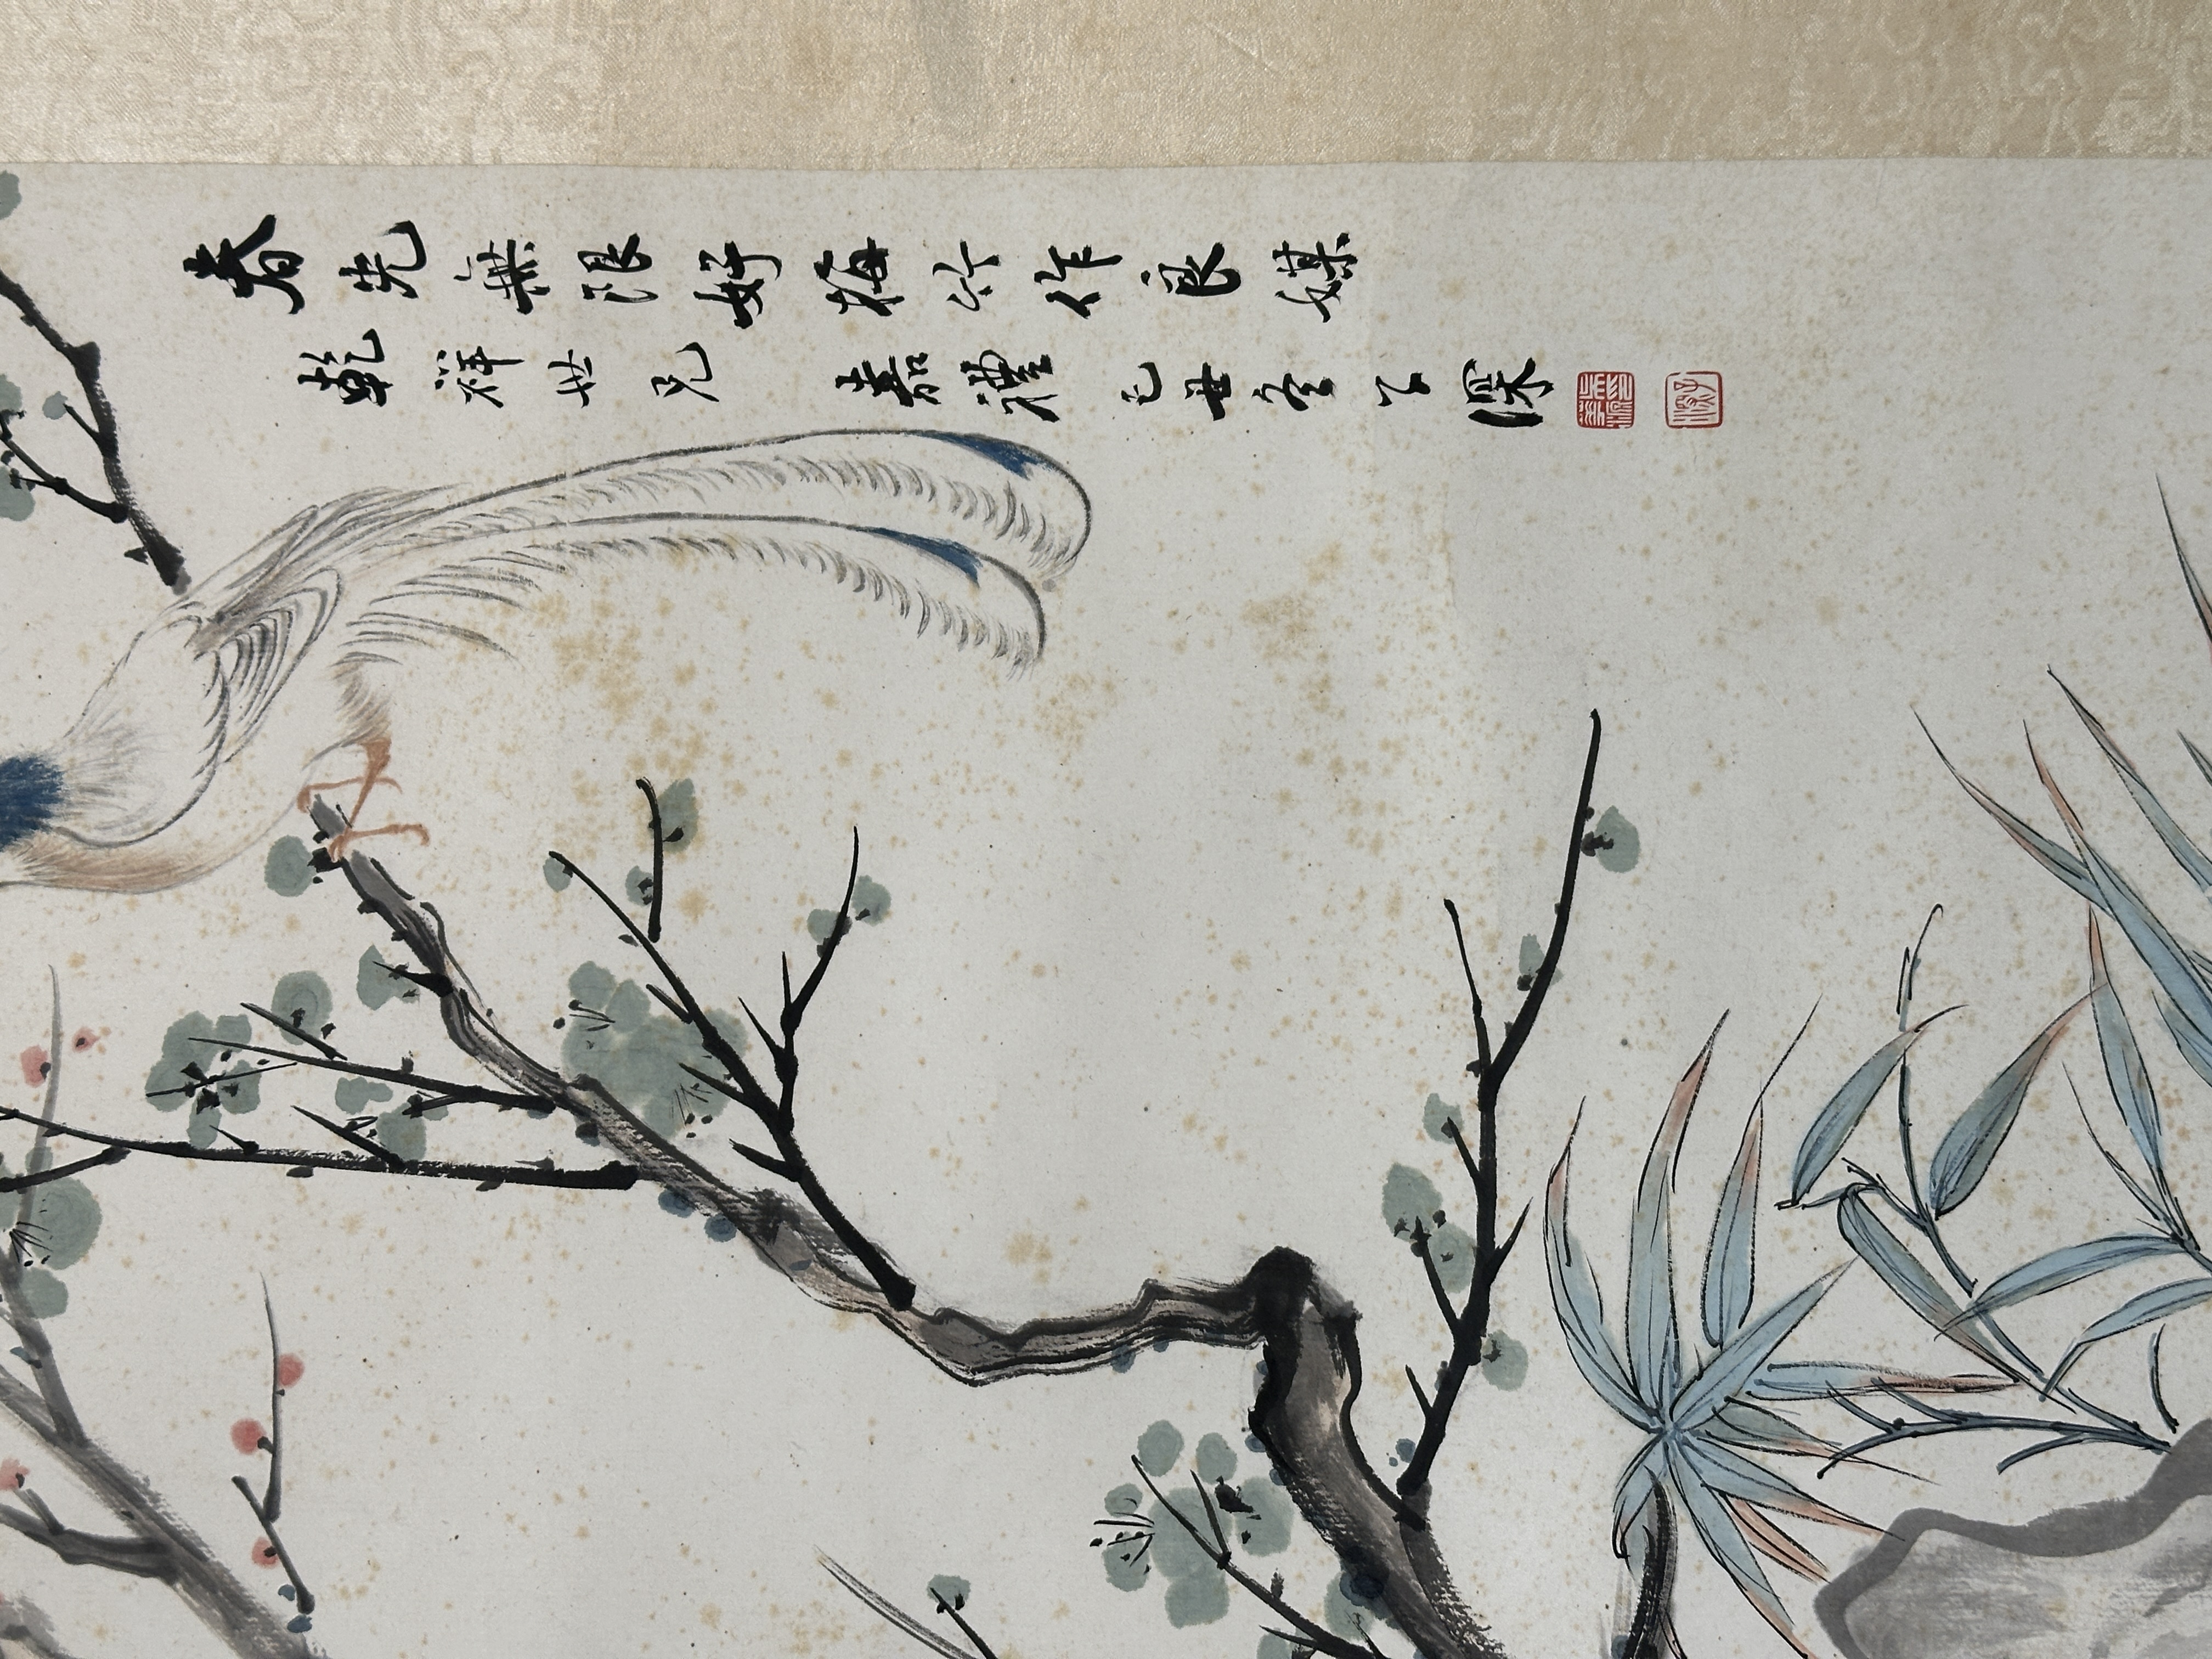 春光無限好梅竹作良媒
乾祥世兄 嘉禮 己丑冬子深